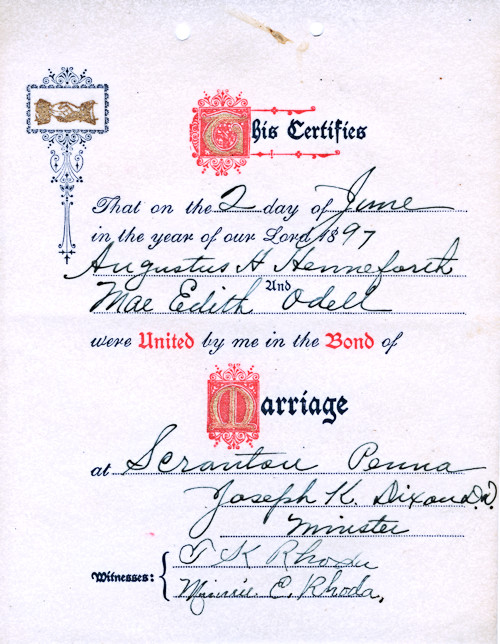 This Certifies
That on the 2 day of June
in the year of our Lord 1897
Augustus H Henneforth
And
Mae Edith Odell
were United by me in the Bond of
Marriage
at Scranton Penna
Joseph K. Dixon D.D.
Minister
Witnesses:
T K Rhoda
Minnie E. Rhoda,